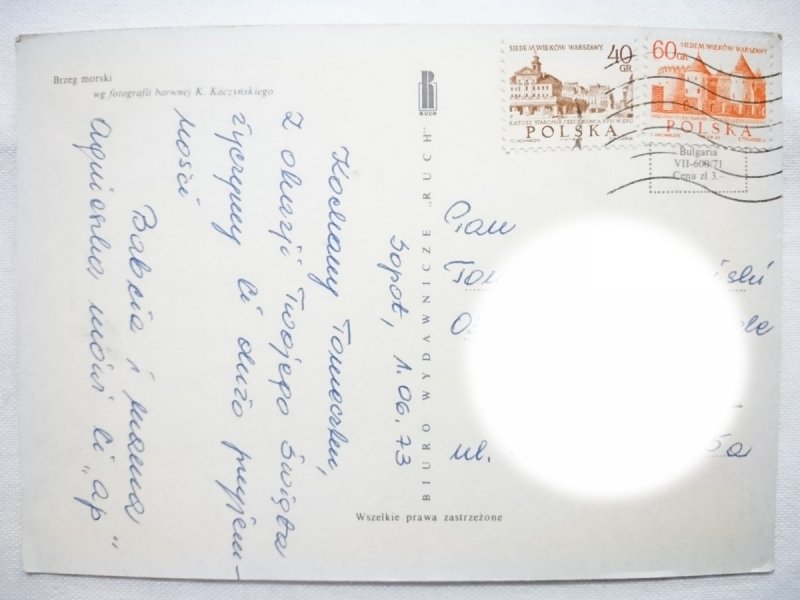 Brzeg morski
wg fotografii barwnej K. Kaczyńskiego
RUCH
SIEDEM WIEKÓW WARSZAWY
40
GR
POLSKA
60
GR
SIEDEM WIEKÓW WARSZAWY
POLSKA
Bulgaria
VII-600/71
Cena zł 3.-
Sopot, 1.06.73
Kochany Tomeczku,
Z okazji Twojego święta
życzymy Ci dużo przyjem-
ności
Babcia i mama
Agnieszka mówi Ci „ap"
BIURO WYDAWNICZE „RUCH"
Pan
ul.
Wszelkie prawa zastrzeżone